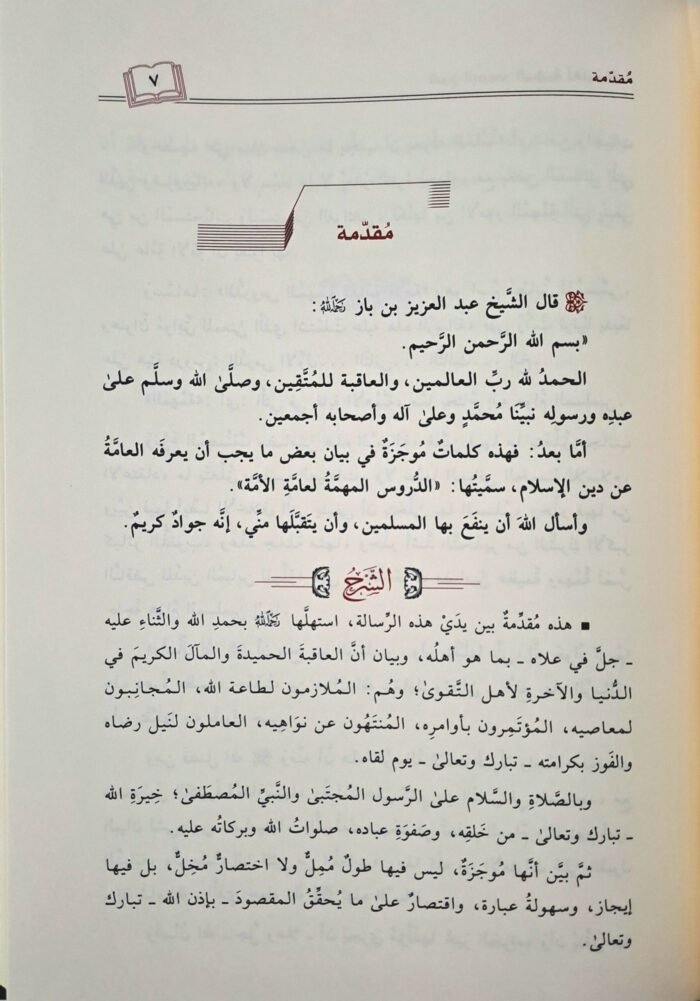 مُقدّمة
٧
مُقدّمة
قال الشَّيخ عبد العزيز بن باز رَحِمَهُ اللهُ:
«بسم الله الرَّحمن الرَّحيم.
الحمدُ لله ربِّ العالمين، والعاقبة للمُتَّقِين، وصلَّىٰ الله وسلَّم علىٰ
عبدِه ورسولِه نبيِّنا مُحمَّدٍ وعلىٰ آله وأصحابه أجمعين.
أمَّا بعدُ: فهذه كلماتٌ مُوجَزَةٌ في بيان بعض ما يجب أن يعرفَه العامَّةُ
عن دين الإسلام، سمَّيتُها: «الدُّروس المهمَّةُ لعامَّةِ الأمَّة».
وأسأل اللهَ أن ينفَعَ بها المسلمين، وأن يتَقبَّلَها منِّي، إنَّه جوادٌ كريمٌ.
الشَّرْحُ
▪ هذه مُقدِّمةٌ بين يدَيْ هذه الرِّسالة، استهلَّها رَحِمَهُ اللهُ بحمدِ الله والثَّناءِ عليه
ـ جلَّ في علاه ـ بما هو أهلُه، وبيان أنَّ العاقبةَ الحميدةَ والمآلَ الكريمَ في
الدُّنيا والآخرةِ لأهل التَّقوىٰ؛ وهُم: المُلازمون لطاعة الله، المُجانِبون
لمعاصيه، المُؤتَمِرون بأوامرِه، المُنتَهُون عن نوَاهِيه، العاملون لنَيل رضاه
والفَوز بكرامته ـ تبارك وتعالىٰ ـ يوم لقاه.
وبالصَّلاةِ والسَّلام علىٰ الرَّسول المُجتَبىٰ والنَّبيِّ المُصطَفىٰ؛ خِيرَةِ الله
ـ تبارك وتعالىٰ ـ من خَلقِه، وصَفوَةِ عباده، صلواتُ الله وبركاتُه عليه.
ثمَّ بيَّن أنَّها مُوجَزَةٌ، ليس فيها طولٌ مُمِلٌّ ولا اختصارٌ مُخِلٌّ، بل فيها
إيجاز، وسهولةُ عبارة، واقتصارٌ علىٰ ما يُحقِّقُ المقصودَ ـ بإذن الله ـ تبارك
وتعالىٰ.